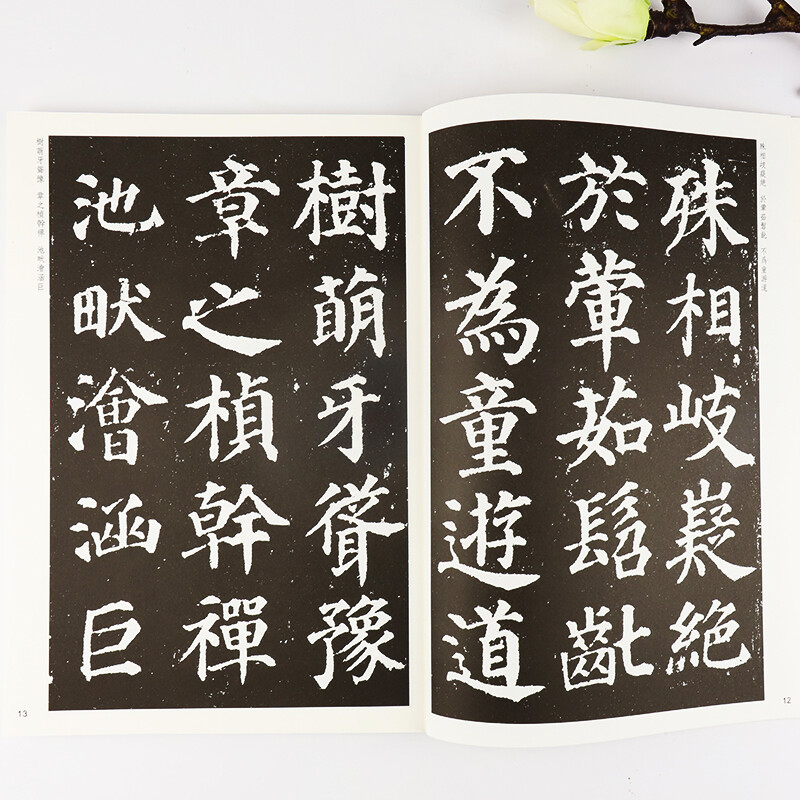 殊相岐嶷絕 於葷茹髫齔 不為童遊道
殊相岐嶷絕
於葷茹髫齔
不為童遊道
12
樹萌牙聳豫
章之楨幹禪
池畎澮涵巨
樹萌牙聳豫 章之楨幹禪 池畎澮涵巨
13